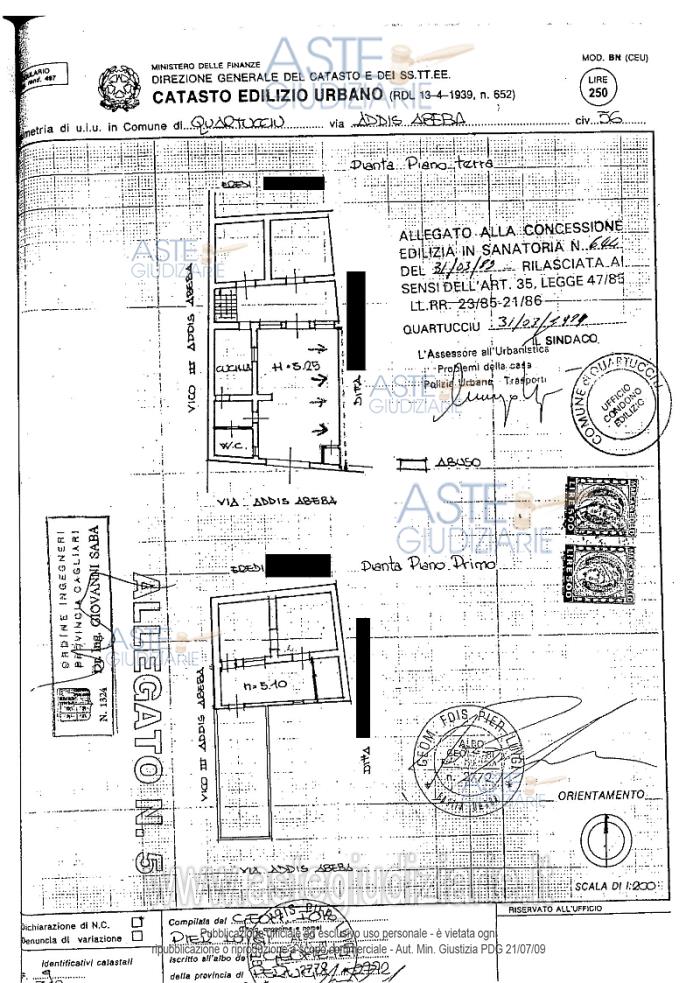 MINISTERO DELLE FINANZE
DIREZIONE GENERALE DEL CATASTO E DEI SS.TT.EE.
CATASTO EDILIZIO URBANO (RDL 13-4-1939, n. 652)
MOD. BN (CEU)
LIRE
250
rend. 497
di u.i.u. in Comune di QUARTUCCIU via ADDIS ABEBA civ. 56
Pianta Piano terra
EREDI
ALLEGATO ALLA CONCESSIONE
EDILIZIA IN SANATORIA N.
DEL RILASCIATA AI
SENSI DELL'ART. 35, LEGGE 47/85
LL.RR. 23/85-21/86
QUARTUCCIU
IL SINDACO
L'Assessore all'Urbanistica
Problemi della casa
Polizia Urbana Trasporti
COMUNE di QUARTUCCIU
UFFICIO
CONDONO
EDILIZIO
VICO III ADDIS ABEBA
CUCINA
H=5.25
W.C.
DITTA
ABUSO
VIA ADDIS ABEBA
LIRE 500
LIRE 500
EREDI
Pianta Piano Primo
ORDINE INGEGNERI
PROVINCIA CAGLIARI
Dr. Ing. GIOVANNI SABA
N. 1324
ALLEGATO N. 5
VICO III ADDIS ABEBA
h=5.10
DITTA
VIA ADDIS ABEBA
GEOM. FOIS PIER LUIGI
ALBO
n. 2772
ORIENTAMENTO
SCALA DI 1:200
RISERVATO ALL'UFFICIO
Dichiarazione di N.C.
Denuncia di variazione
Identificativi catastali
F.
Compilata dal
Iscritto all'albo de
della provincia di
ASTE GIUDIZIARIE
www.astegiudiziarie.it
Pubblicazione ufficiale ad esclusivo uso personale - è vietata ogni
ripubblicazione o riproduzione a scopo commerciale - Aut. Min. Giustizia PDG 21/07/09